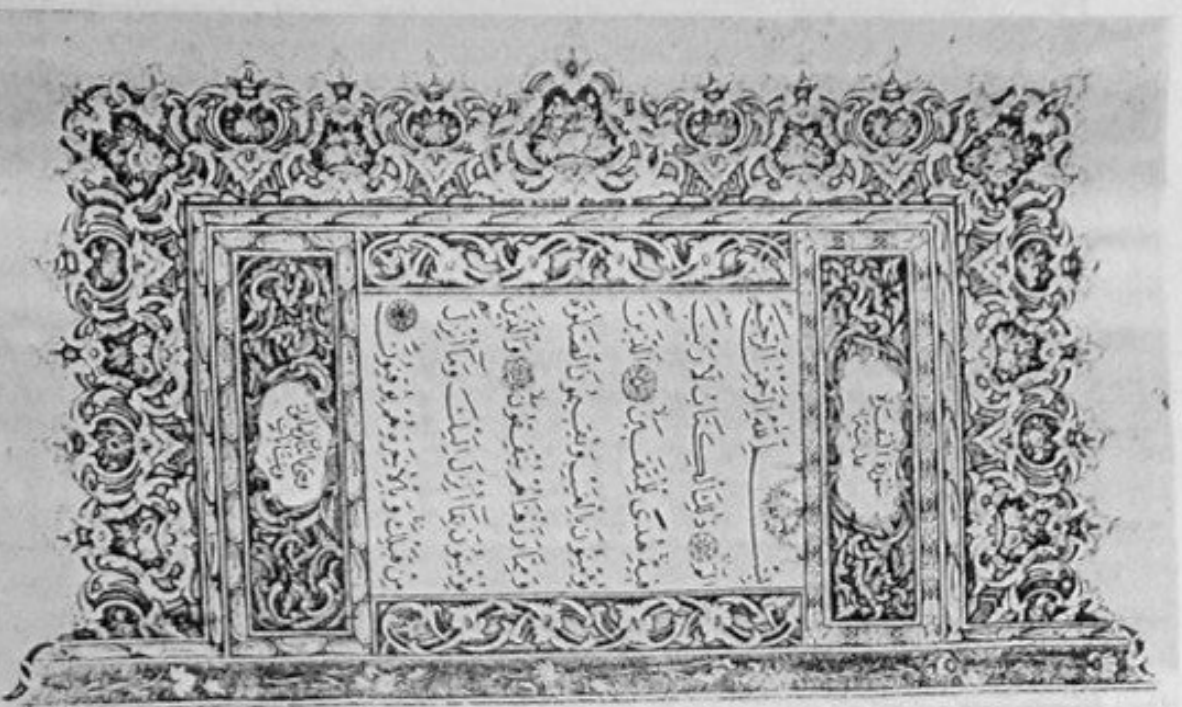 سورة البقرة
بِسْمِ اللَّهِ الرَّحْمٰنِ الرَّحِيمِ
الٓمٓ ذٰلِكَ الْكِتَابُ لَا رَيْبَ
فِيهِ هُدًى لِلْمُتَّقِينَ الَّذِينَ
يُؤْمِنُونَ بِالْغَيْبِ وَيُقِيمُونَ الصَّلٰوةَ
وَمِمَّا رَزَقْنَاهُمْ يُنْفِقُونَ وَالَّذِينَ
يُؤْمِنُونَ بِمَا أُنْزِلَ إِلَيْكَ وَمَا أُنْزِلَ
مِنْ قَبْلِكَ وَبِالْآخِرَةِ هُمْ يُوقِنُونَ